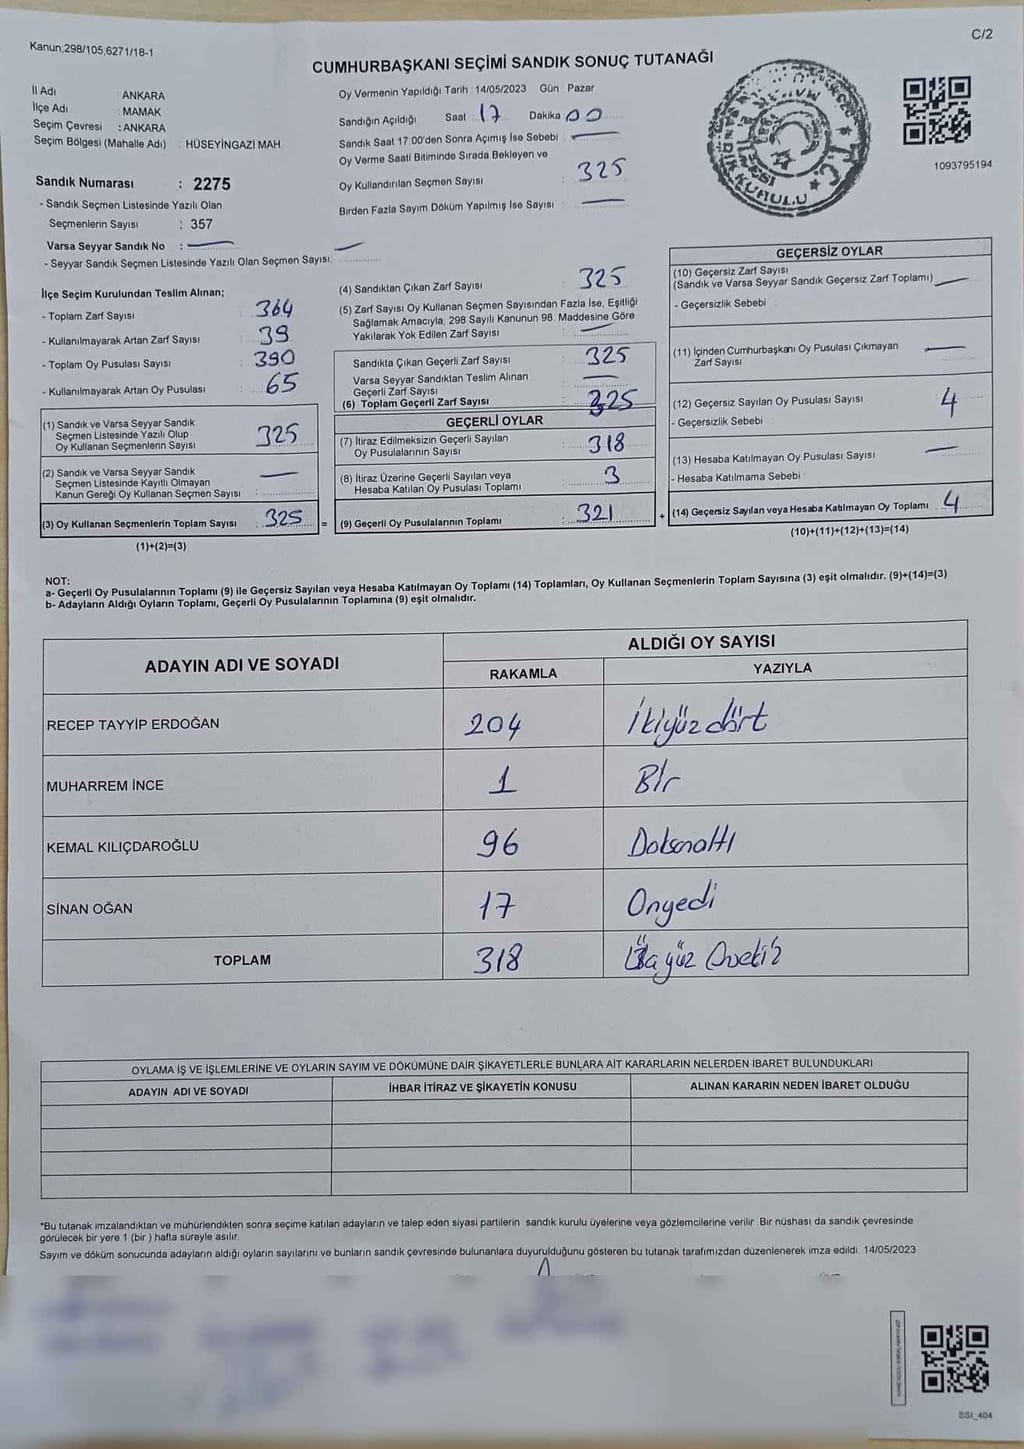 Kanun;298/105,6271/18-1
C/2
CUMHURBAŞKANI SEÇİMİ SANDIK SONUÇ TUTANAĞI
İl Adı : ANKARA
İlçe Adı : MAMAK
Seçim Çevresi : ANKARA
Seçim Bölgesi (Mahalle Adı) : HÜSEYİNGAZİ MAH.
Sandık Numarası : 2275
- Sandık Seçmen Listesinde Yazılı Olan
Seçmenlerin Sayısı : 357
Varsa Seyyar Sandık No :
- Seyyar Sandık Seçmen Listesinde Yazılı Olan Seçmen Sayısı:
Oy Vermenin Yapıldığı Tarih : 14/05/2023 Gün : Pazar
Sandığın Açıldığı Saat 17 Dakika 00
Sandık Saat 17.00'den Sonra Açımış İse Sebebi :
Oy Verme Saati Bitiminde Sırada Bekleyen ve
Oy Kullandırılan Seçmen Sayısı : 325
Birden Fazla Sayım Döküm Yapılmış İse Sayısı :
T.C.
SANDIK KURULU
1093795194
İlçe Seçim Kurulundan Teslim Alınan;
- Toplam Zarf Sayısı : 364
- Kullanılmayarak Artan Zarf Sayısı : 39
- Toplam Oy Pusulası Sayısı : 390
- Kullanılmayarak Artan Oy Pusulası : 65
(1) Sandık ve Varsa Seyyar Sandık
Seçmen Listesinde Yazılı Olup
Oy Kullanan Seçmenlerin Sayısı : 325
(2) Sandık ve Varsa Seyyar Sandık
Seçmen Listesinde Kayıtlı Olmayan
Kanun Gereği Oy Kullanan Seçmen Sayısı :
(3) Oy Kullanan Seçmenlerin Toplam Sayısı : 325 =
(1)+(2)=(3)
(4) Sandıktan Çıkan Zarf Sayısı : 325
(5) Zarf Sayısı Oy Kullanan Seçmen Sayısından Fazla İse, Eşitliği
Sağlamak Amacıyla; 298 Sayılı Kanunun 98. Maddesine Göre
Yakılarak Yok Edilen Zarf Sayısı :
Sandıkta Çıkan Geçerli Zarf Sayısı : 325
Varsa Seyyar Sandıktan Teslim Alınan
Geçerli Zarf Sayısı :
(6) Toplam Geçerli Zarf Sayısı : 325
GEÇERLİ OYLAR
(7) İtiraz Edilmeksizin Geçerli Sayılan
Oy Pusulalarının Sayısı : 318
(8) İtiraz Üzerine Geçerli Sayılan veya
Hesaba Katılan Oy Pusulası Toplamı : 3
(9) Geçerli Oy Pusulalarının Toplamı : 321 +
GEÇERSİZ OYLAR
(10) Geçersiz Zarf Sayısı
(Sandık ve Varsa Seyyar Sandık Geçersiz Zarf Toplamı)
- Geçersizlik Sebebi :
(11) İçinden Cumhurbaşkanı Oy Pusulası Çıkmayan
Zarf Sayısı
(12) Geçersiz Sayılan Oy Pusulası Sayısı : 4
- Geçersizlik Sebebi :
(13) Hesaba Katılmayan Oy Pusulası Sayısı :
- Hesaba Katılmama Sebebi :
(14) Geçersiz Sayılan veya Hesaba Katılmayan Oy Toplamı : 4
(10)+(11)+(12)+(13)=(14)
NOT:
a- Geçerli Oy Pusulalarının Toplamı (9) ile Geçersiz Sayılan veya Hesaba Katılmayan Oy Toplamı (14) Toplamları, Oy Kullanan Seçmenlerin Toplam Sayısına (3) eşit olmalıdır. (9)+(14)=(3)
b- Adayların Aldığı Oyların Toplamı, Geçerli Oy Pusulalarının Toplamına (9) eşit olmalıdır.
ADAYIN ADI VE SOYADI
ALDIĞI OY SAYISI
RAKAMLA YAZIYLA
RECEP TAYYİP ERDOĞAN 204 İkiyüzdört
MUHARREM İNCE 1 Bir
KEMAL KILIÇDAROĞLU 96 Doksanaltı
SİNAN OĞAN 17 Onyedi
TOPLAM 318
OYLAMA İŞ VE İŞLEMLERİNE VE OYLARIN SAYIM VE DÖKÜMÜNE DAİR ŞİKAYETLERLE BUNLARA AİT KARARLARIN NELERDEN İBARET BULUNDUKLARI
ADAYIN ADI VE SOYADI İHBAR İTİRAZ VE ŞİKAYETİN KONUSU ALINAN KARARIN NEDEN İBARET OLDUĞU
*Bu tutanak imzalandıktan ve mühürlendikten sonra seçime katılan adayların ve talep eden siyasi partilerin sandık kurulu üyelerine veya gözlemcilerine verilir. Bir nüshası da sandık çevresinde
görülecek bir yere 1 (bir ) hafta süreyle asılır.
Sayım ve döküm sonucunda adayların aldığı oyların sayılarını ve bunların sandık çevresinde bulunanlara duyurulduğunu gösteren bu tutanak tarafımızdan düzenlenerek imza edildi. 14/05/2023
SSI_404